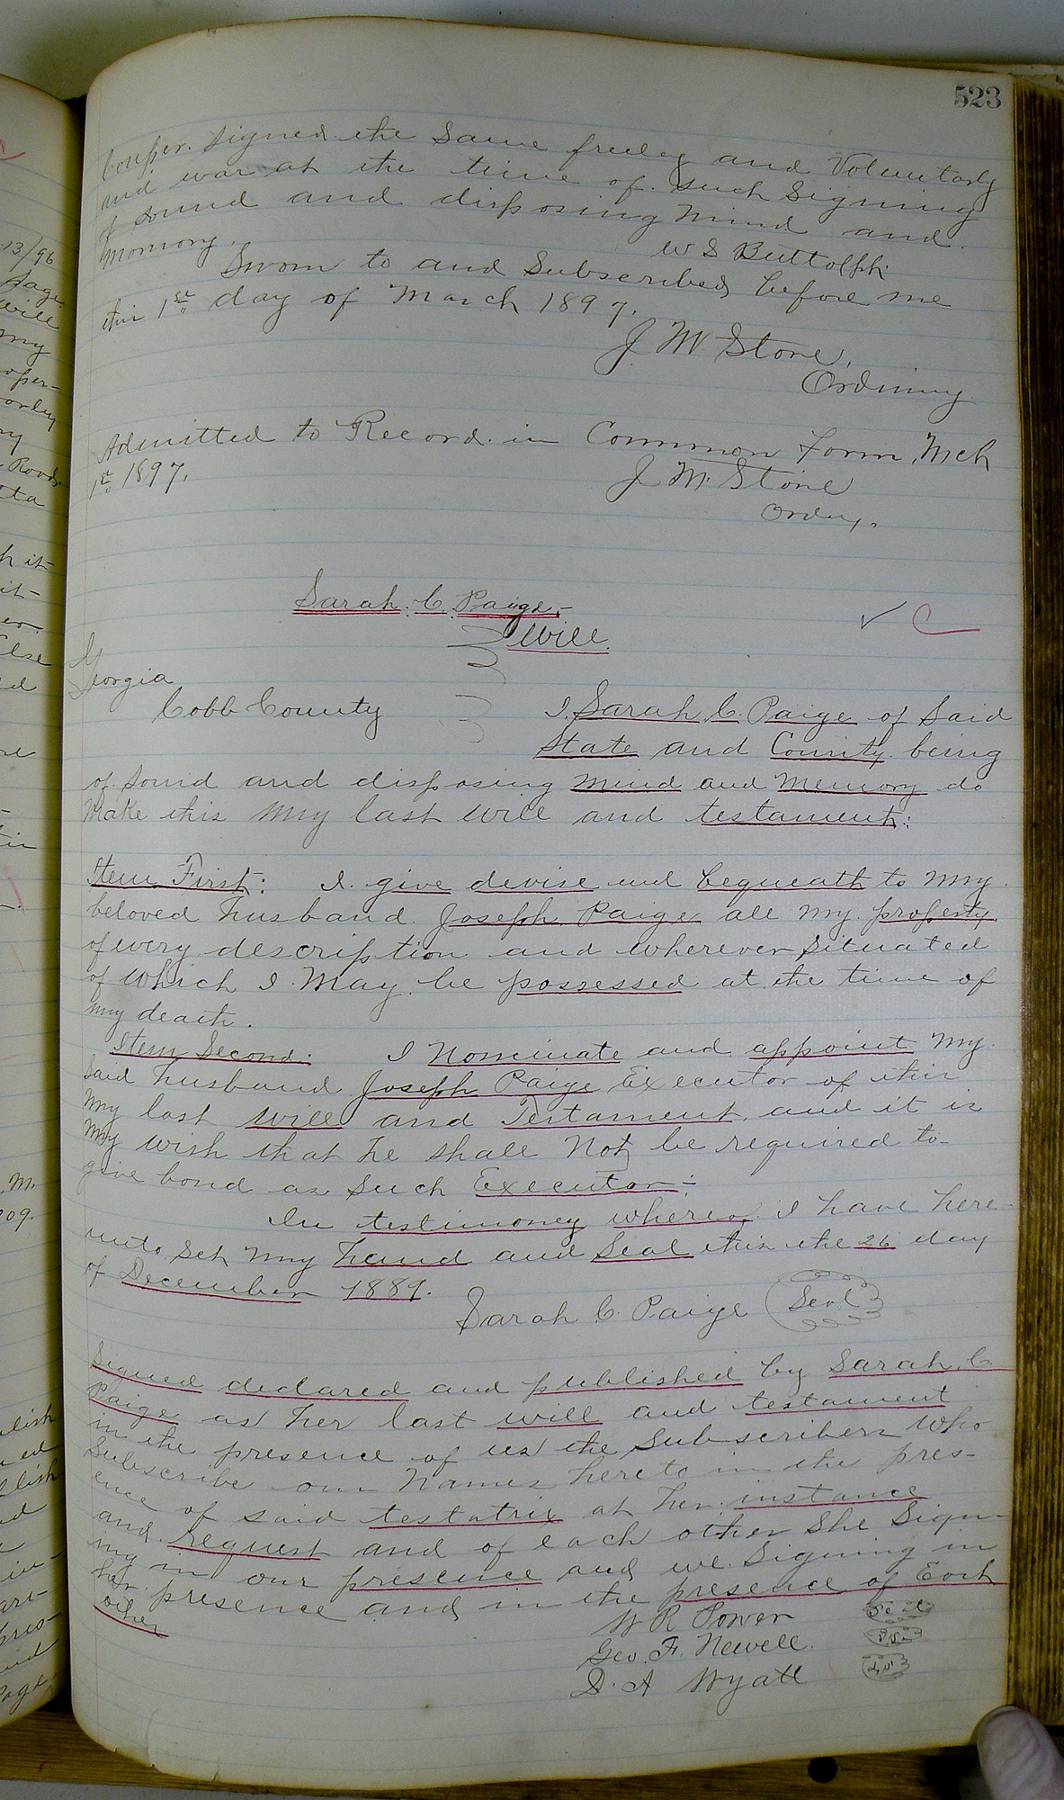 523
Couper. Signed the Same freeley and Voluntarly
and was at the time of such Signing
of sound and disposing Mind and
Momory. W S Buttolph
Sworn to and Subscribed before me
this 1st day of March 1897.
J M Stone,
Ordinary
Admitted to Record in Common Form, Mch
1st 1897.
J M. Stone
Ordny.
Sarah. C. Paige,
Will.
C
Georgia
Cobb County I Sarah C. Paige of Said
State and County being
of Sound and disposing Mind and Memory do
Make this My last will and testament:
Item First: I give devise and bequeath to My
beloved husband Joseph Paige all My property
of every description and wherever Situated
of which I May be possessed at the time of
My death.
Item Second: I Nominate and appoint My
Said husband Joseph Paige Executor of this
My last will and Testament, and it is
My wish that he shall Not be required to
give bond as Such Executor.
In testimoney whereof I have here
unto Set My hand and Seal this the 26 day
of December 1889.
Sarah C. Paige Seal
Signed declared and published by Sarah. C
Paige as her last will and testament
in the presence of us the Subscribers who
Subscribe our Names hereto in the pres-
ence of said testatrix at her instance
and request and of each other She Sign-
ing in our presence and we Signing in
her presence and in the presence of Each
other
W R Power
Geo. F. Newell.
D. A Wyatt